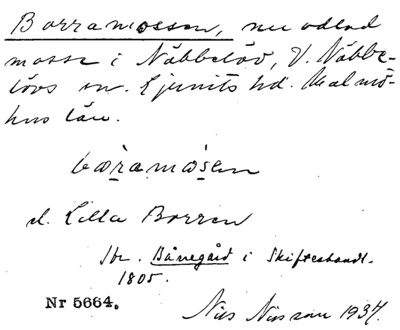 Borramossen, nu odlad
mosse i Näbbelöv, V. Näbbe-
lövs sn. Ljunits hd. Malmö-
hus län.
bɷramɷsen
el. Lilla Borren
Jbr. Bånegård i Skifteshandl.
1805.
Nr 5664.
Nils Nilsson 1937.